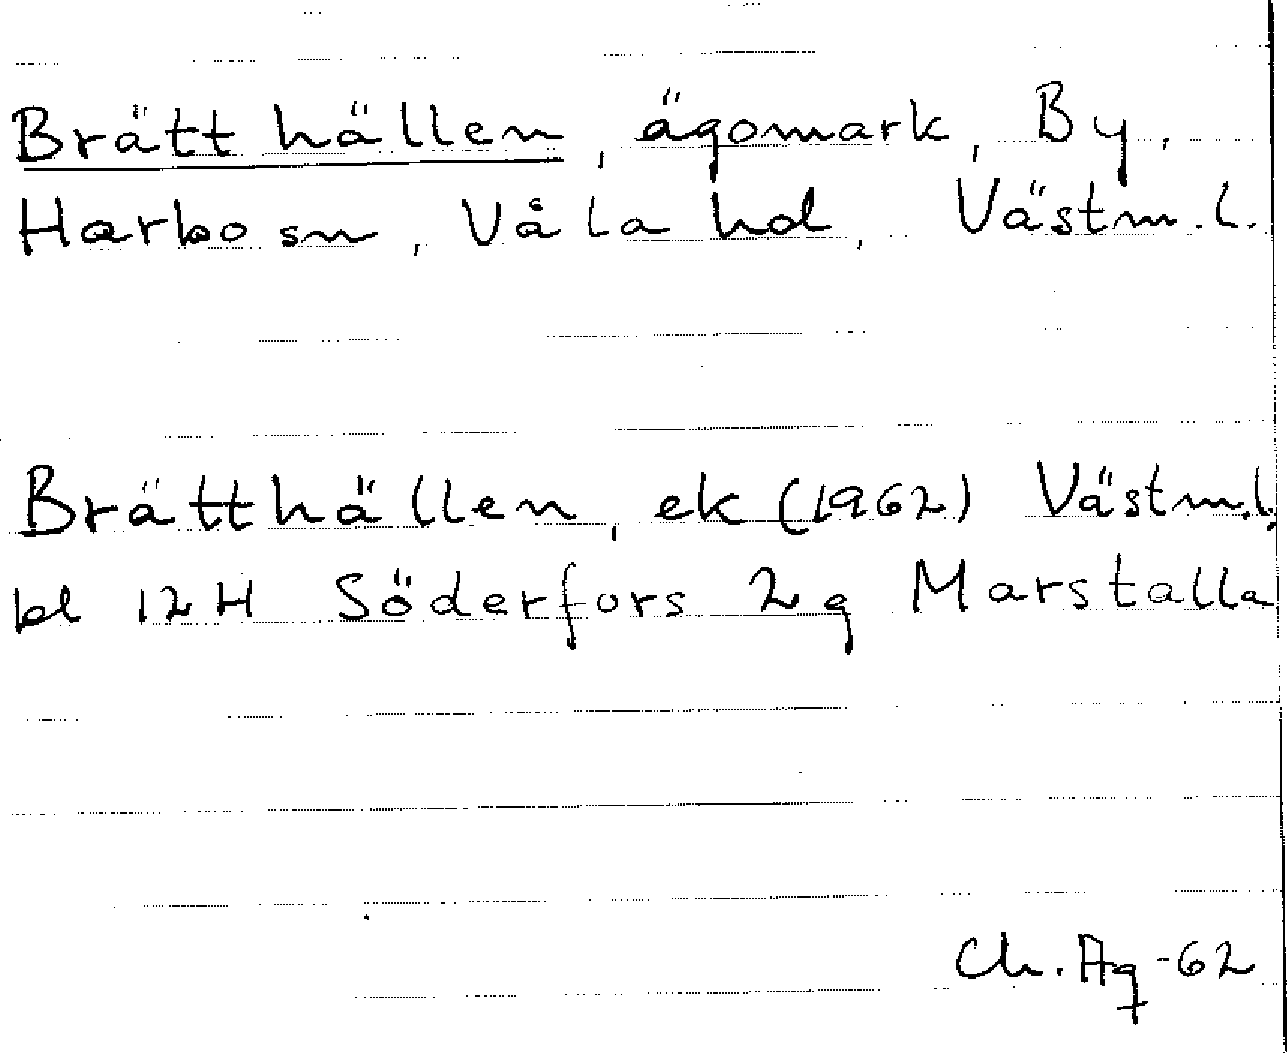 Brätthällen, ägomark, By,
Harbo sn, Våla hd, Västm.l.
Brätthällen, ek (1962) Västm.l,
bl 12H Söderfors 2g Marstalla
Ch. Ag -62